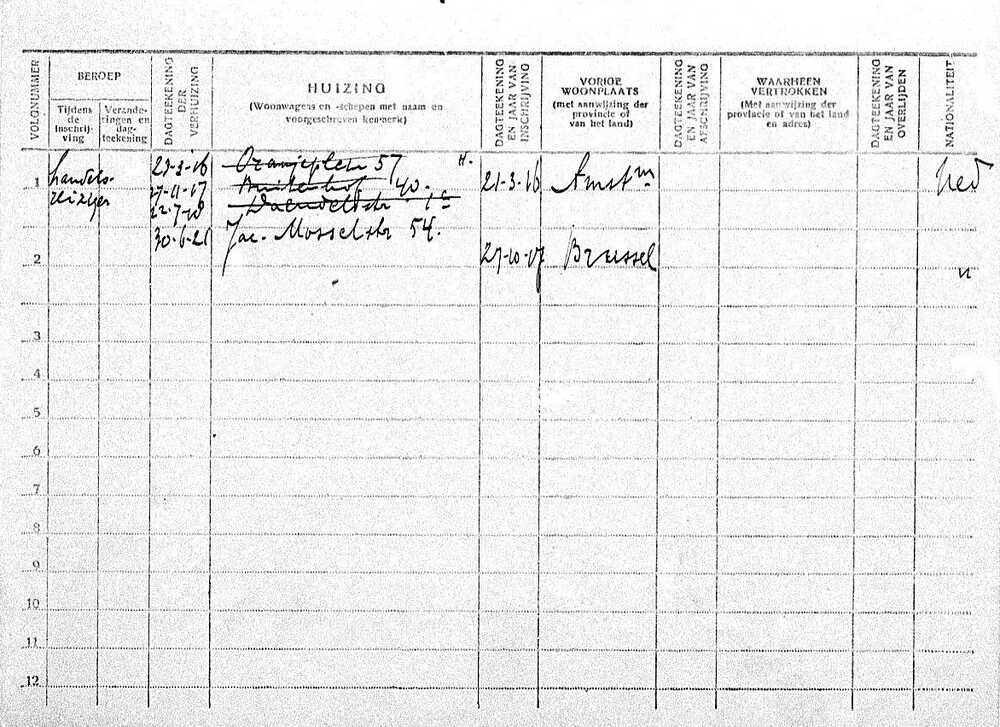 VOLGNUMMER
BEROEP
Tijdens de inschrijving
Veranderingen en dagteekening
DAGTEEKENING DER VERHUIZING
HUIZING
(Woonwagens en -schepen met naam en voorgeschreven kenmerk)
DAGTEEKENING EN JAAR VAN INSCHRIJVING
VORIGE WOONPLAATS
(met aanwijzing der provincie of van het land)
DAGTEEKENING EN JAAR VAN AFSCHRIJVING
WAARHEEN VERTROKKEN
(Met aanwijzing der provincie of van het land en adres)
DAGTEEKENING EN JAAR VAN OVERLIJDEN
NATIONALITEIT
1 handels- 21-3-16 Oranjeplein 57 H. 21-3-16 Amstm Ned
reiziger 27-11-17 Buitenhof 40.
22-7-18 Daendelsstr
30-6-21 Jac. Mosselstr 54.
2 27-10-17 Brussel "
3
4
5
6
7
8
9
10
11
12